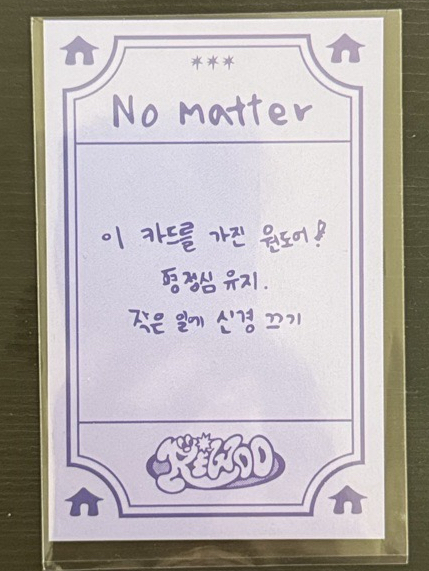 No matter
이 카드를 가진 원도어!
평정심 유지.
작은 일에 신경 끄기
RiWOO